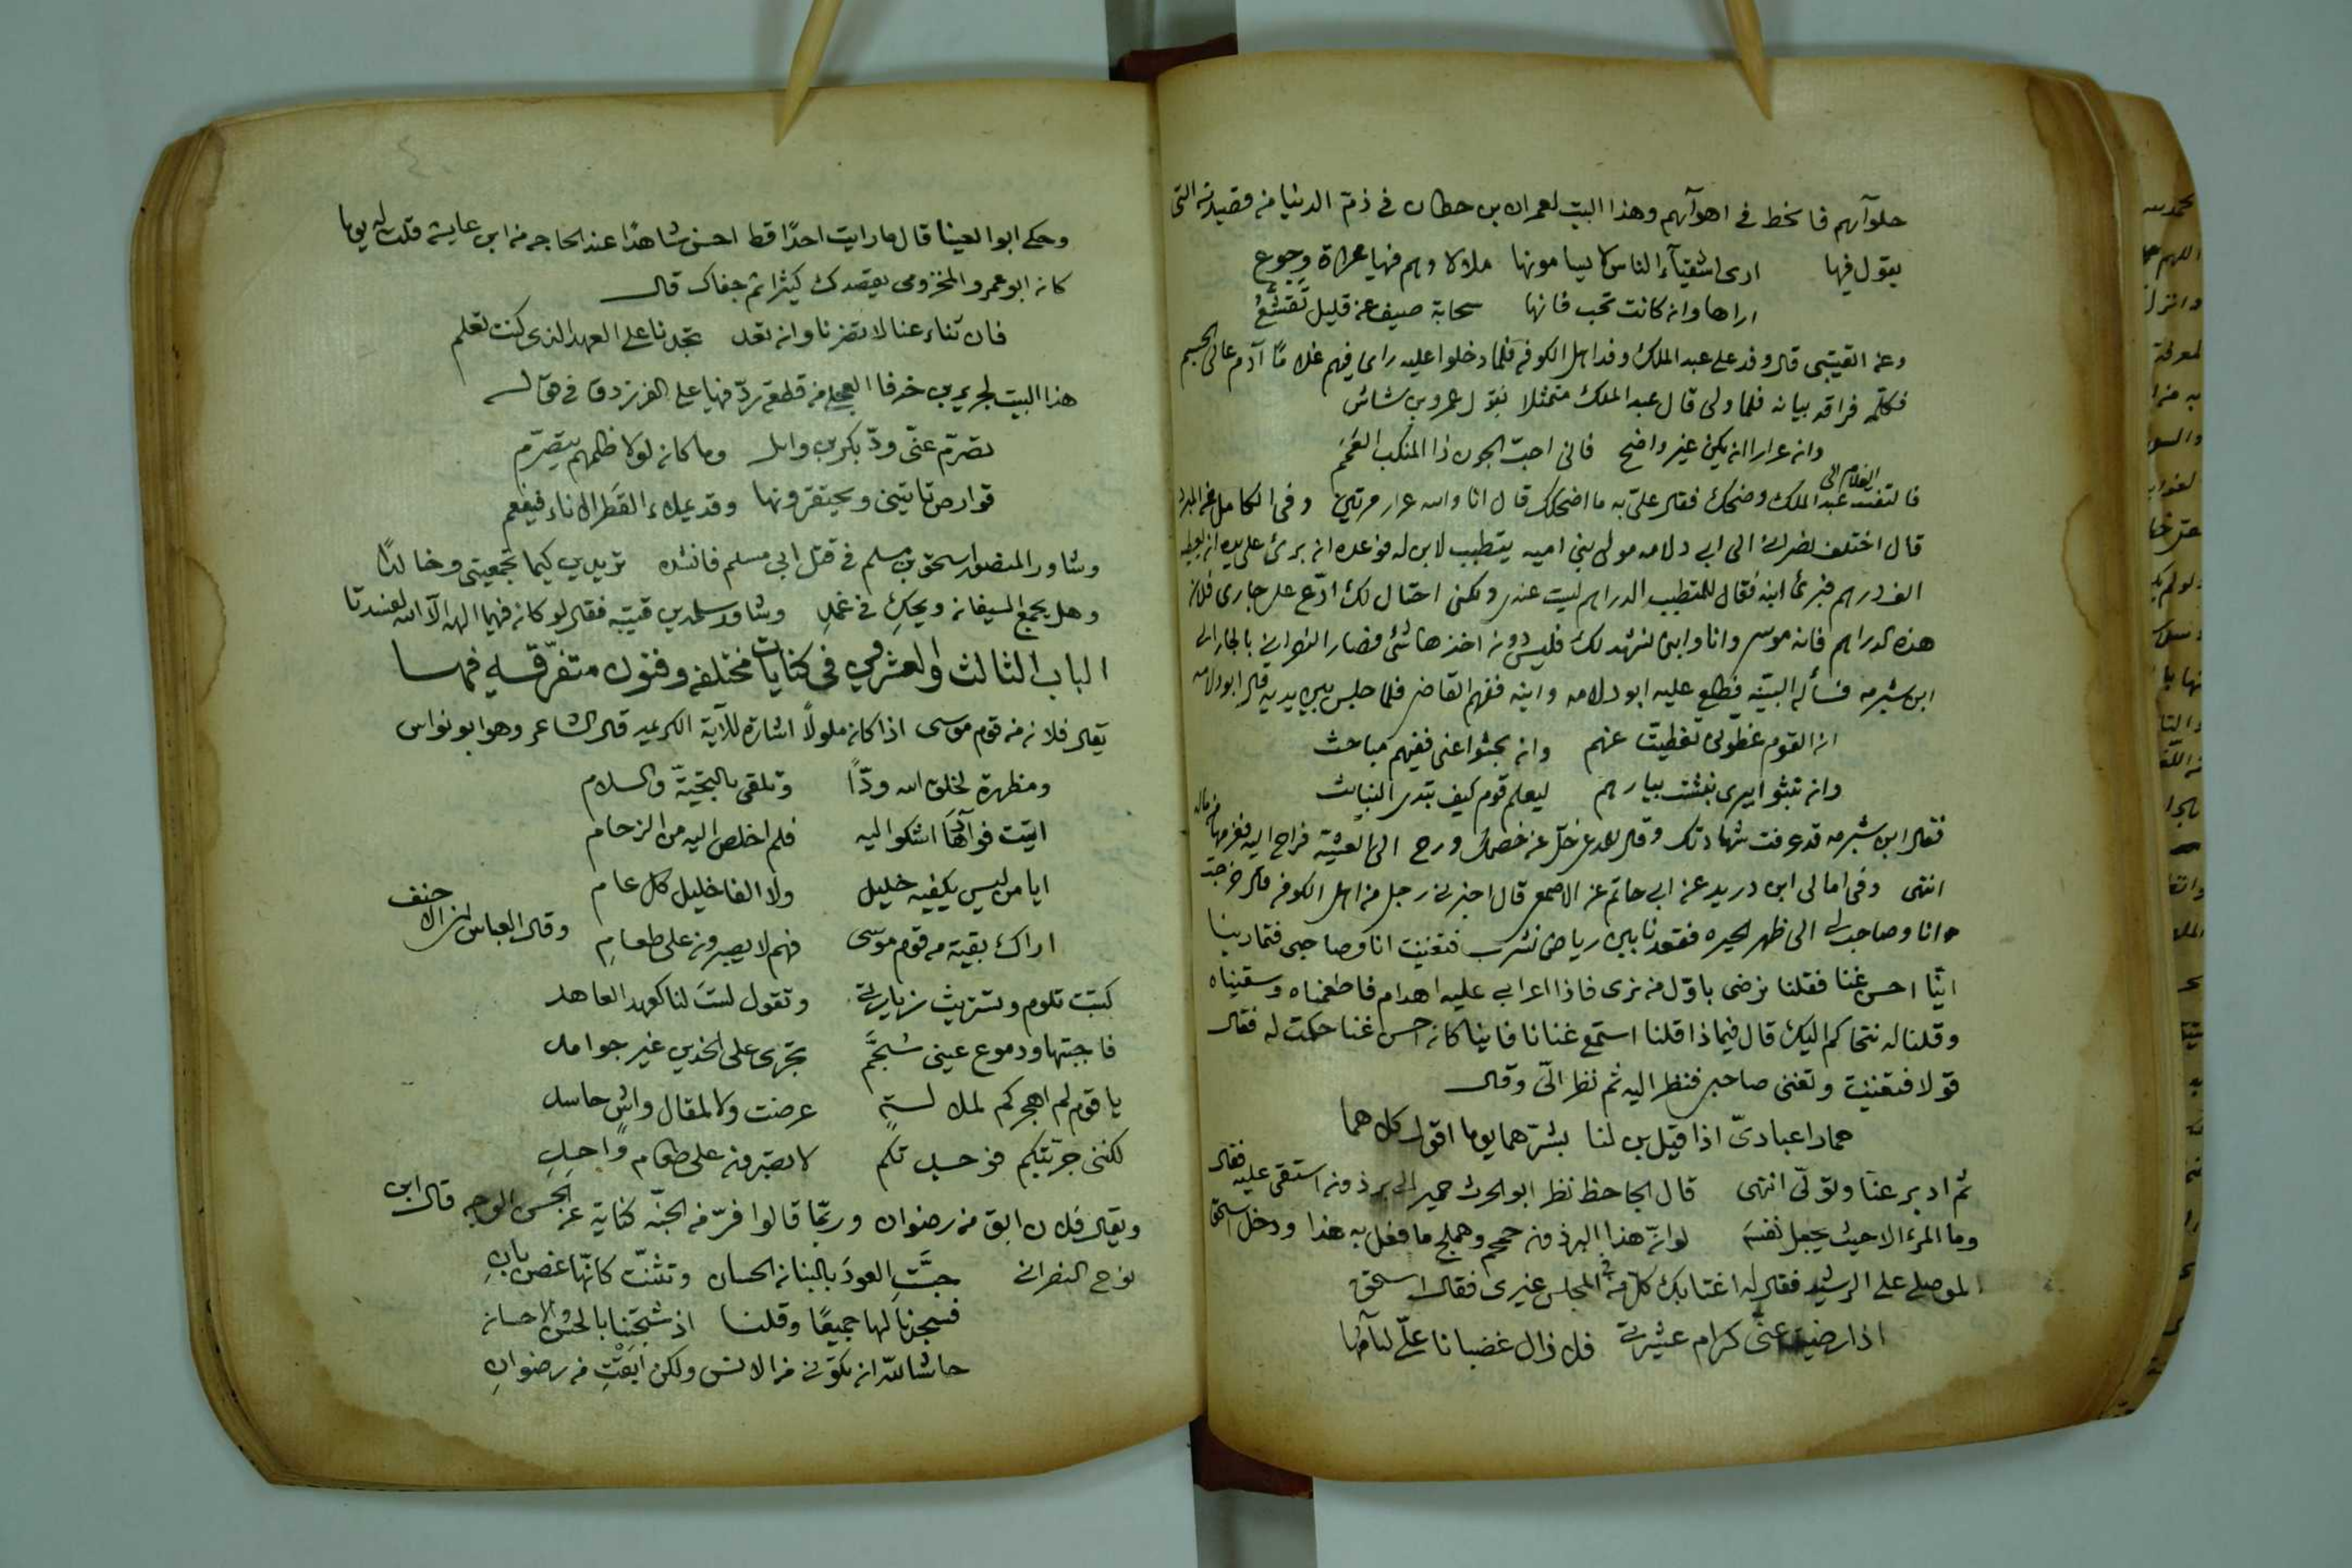 حلوآئهم فانحط في اهوآئهم وهذا البيت لعمران بن حطان في ذم الدنيا من قصيدته التي
يقول فيها ارى اشقيآء الناس لا يسامونها ملالا وهم فيها عراة وجوع
اراها وان كانت تحب فانها سحابة صيف عن قليل تقشع
وعن القتيبي قال وفد على عبد الملك وفد اهل الكوفه فلما دخلوا عليه راى فيهم غلاما آدم عالي الجسم
فكلمه فراقه بيانه فلما ولى قال عبد الملك متمثلا بقول عمرو بن شاش
وان عرارا ان يكن غير واضح فاني احب الجون ذا المنكب العمم
فالتفت الغلام الى عبد الملك وضحك فقال علي به ما اضحكك قال انا والله عرار مرتين وفي الكامل عن المبرد
قال اختلف نصراني الى ابي دلامه مولى بني اميه يتطبب لابن له فوعده ان برئ على يده ان يعطيه
الف درهم فبرئ ابنه فقال للمتطبب الدراهم ليست عندي ولكني احتال لك ادّع على جاري فلان
هذه الدراهم فانه موسر وانا وابني نشهد لك فليس دون اخذها شئ فصار النصراني بالجار الى
ابن شبرمه فسأله البينه فطلع عليه ابو دلامه وابنه ففهم القاضي فلما جلس بين يديه قال ابو دلامه
ان القوم غطوني تغطيت عنهم وان بحثوا عني ففيهم مباحث
وان نبثوا بيري نبثت بيارهم ليعلم قوم كيف تبدى النبايث
فقال ابن شبرمه قد عرفت شهادتك وقال للمدعي خل عن خصمك ورح الى العشية فراح اليه فغرمها من ماله
انتهى وفي امالي ابن دريد عن ابي حاتم عن الاصمعي قال اخبرني رجل من اهل الكوفه قال خرجت
وانا وصاحب لي الى ظهر الحيره فقعدنا بين رياض نشرب فتغنيت انا وصاحبي فتمارينا
ايّنا احسن غنا فقلنا نرضى باول من نرى فاذا اعرابي عليه اهدام فاطعمناه وسقيناه
وقلنا له نتحاكم اليك قال فيماذا قلنا استمع غنانا فاينا كان احسن غنا حكمت له فقال
قولا فتغنيت وتغنى صاحبي فنظر اليه ثم نظر الىّ وقال
حمارا عبادىّ اذا قيل بن لنا بشرهما يوما اقول كلاهما
ثم ادبر عنا وتولى انتهى قال الجاحظ نظر ابو الحرث حمير الى برذون استقى عليه فقال
وما المرء الا حيث يجعل نفسه لو انّ هذا البرذون حمحم وهملج ما فعل به هذا ودخل اسحق
الموصلي على الرشيد فقال له اغتابك كل من في المجلس غيرى فقال اسحق
اذا رضيت عنى كرام عشيرتي فلا زال غضبانا علىّ لئآمها
وحكى ابو العينا قال ما رايت احدا قط احسن شاهدا عند الحاجه من ابن عايشه قلت له يوما
كان ابو عمرو المخزومي يقصدك كثيرا ثم جفاك قال
فان تناء عنا لا تضرنا وان تعد تجدنا على العهد الذى كنت تعلم
هذا البيت لجرير بن خرفا العجلي من قطعة ردّ فيها على الفرزدق في قوله
تصرّم عنّى ودّ بكر بن وايل وما كان لولا ظلمهم يتصرّم
قوارص تاتيني ويحتقرونها وقد يملاء القطر الاناء فيفعم
وشاور المنصور اسحق بن مسلم في قتل ابي مسلم فانشده تريدين كيما تجمعيني وخالدًا
وهل يجمع السيفان ويحك في غمد وشاور سلم بن قتيبه فقال لو كان فيهما الهة الا الله لفسدتا
الباب الثالث والعشرون في كنايات مختلفه وفنون متفرقه فمنها
يقال فلان من قوم موسى اذا كان ملولًا اشارة للآية الكريمه قال الشاعر وهو ابو نواس
ومظهرة لخلق الله ودّا وتلقى بالتحيّة والسلام
اتيت فوآدها اشكو اليه فلم اخلص اليه من الزحام
ايا من ليس يكفيه خليل ولا الفا خليل كل عام
اراك بقية من قوم موسى فهم لا يصبرون على طعام وقال العباس بن الاحنف
كتبت تلوم وتستريث زيارتي وتقول لستَ لنا كعهد العاهد
فاجبتها ودموع عينى سُجّمٌ تجرى على الخدين غير جوامد
يا قوم لم اهجركم لملالة عرضت ولا لمقال واشٍ حاسد
لكننى جرّبتكم فوجدتكم لا تصبرون على طعام واحدِ
ويقال فلان ابق من رضوان وربّما قالوا فرّ من الجنّه كناية عن الحسن الوجه قال ابن
نوح النصراني جسَّتِ العودَ بالبنان الحسان وتثنّت كانّها غصن بانِ
فسجدنا لها جميعًا وقلنا اذ شجتنا بالحسن والاحسان
حاشا لله ان تكوني من الانس ولكن ابقتِ من رضوانِ